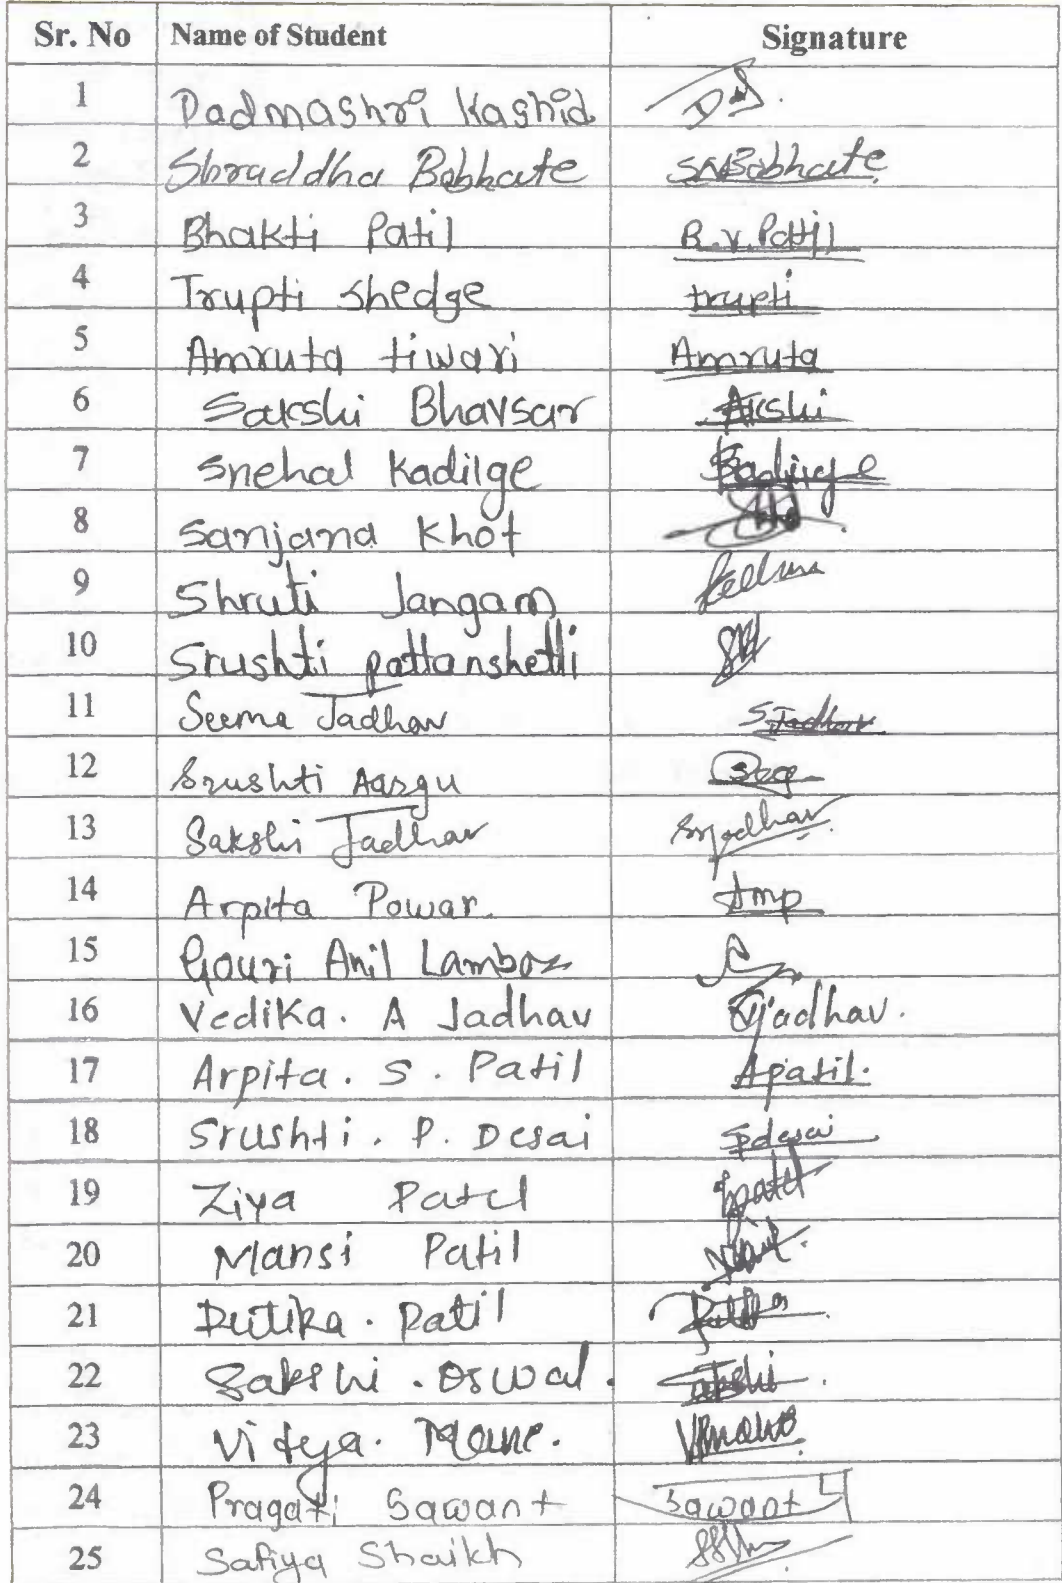 Sr. No Name of Student Signature
1 Padmashri Kashid
2 Shraddha Bobhate SNBobhate
3 Bhakti Patil B.V.Patil
4 Trupti Shedge trupti
5 Amruta tiwari Amruta
6 Sakshi Bhavsar Akshi
7 Snehal Kadilge
8 Sanjana Khot
9 Shruti Jangam
10 Srushti pattanshetti
11 Seema Jadhav S.Jadhav
12 Srushti Aargu
13 Sakshi Jadhav Jadhav
14 Arpita Powar. Amp
15 Gouri Anil Lambor
16 Vedika. A Jadhav Vjadhav.
17 Arpita. S. Patil Apatil.
18 Srushti. P. Desai Spdesai
19 Ziya Patel Zpatel
20 Mansi Patil
21 Rutika. Patil
22 Sakshi. Oswal. Sakshi.
23 Vidya. Mane. Vmane
24 Pragati Sawant Sawant
25 Safiya Shaikh